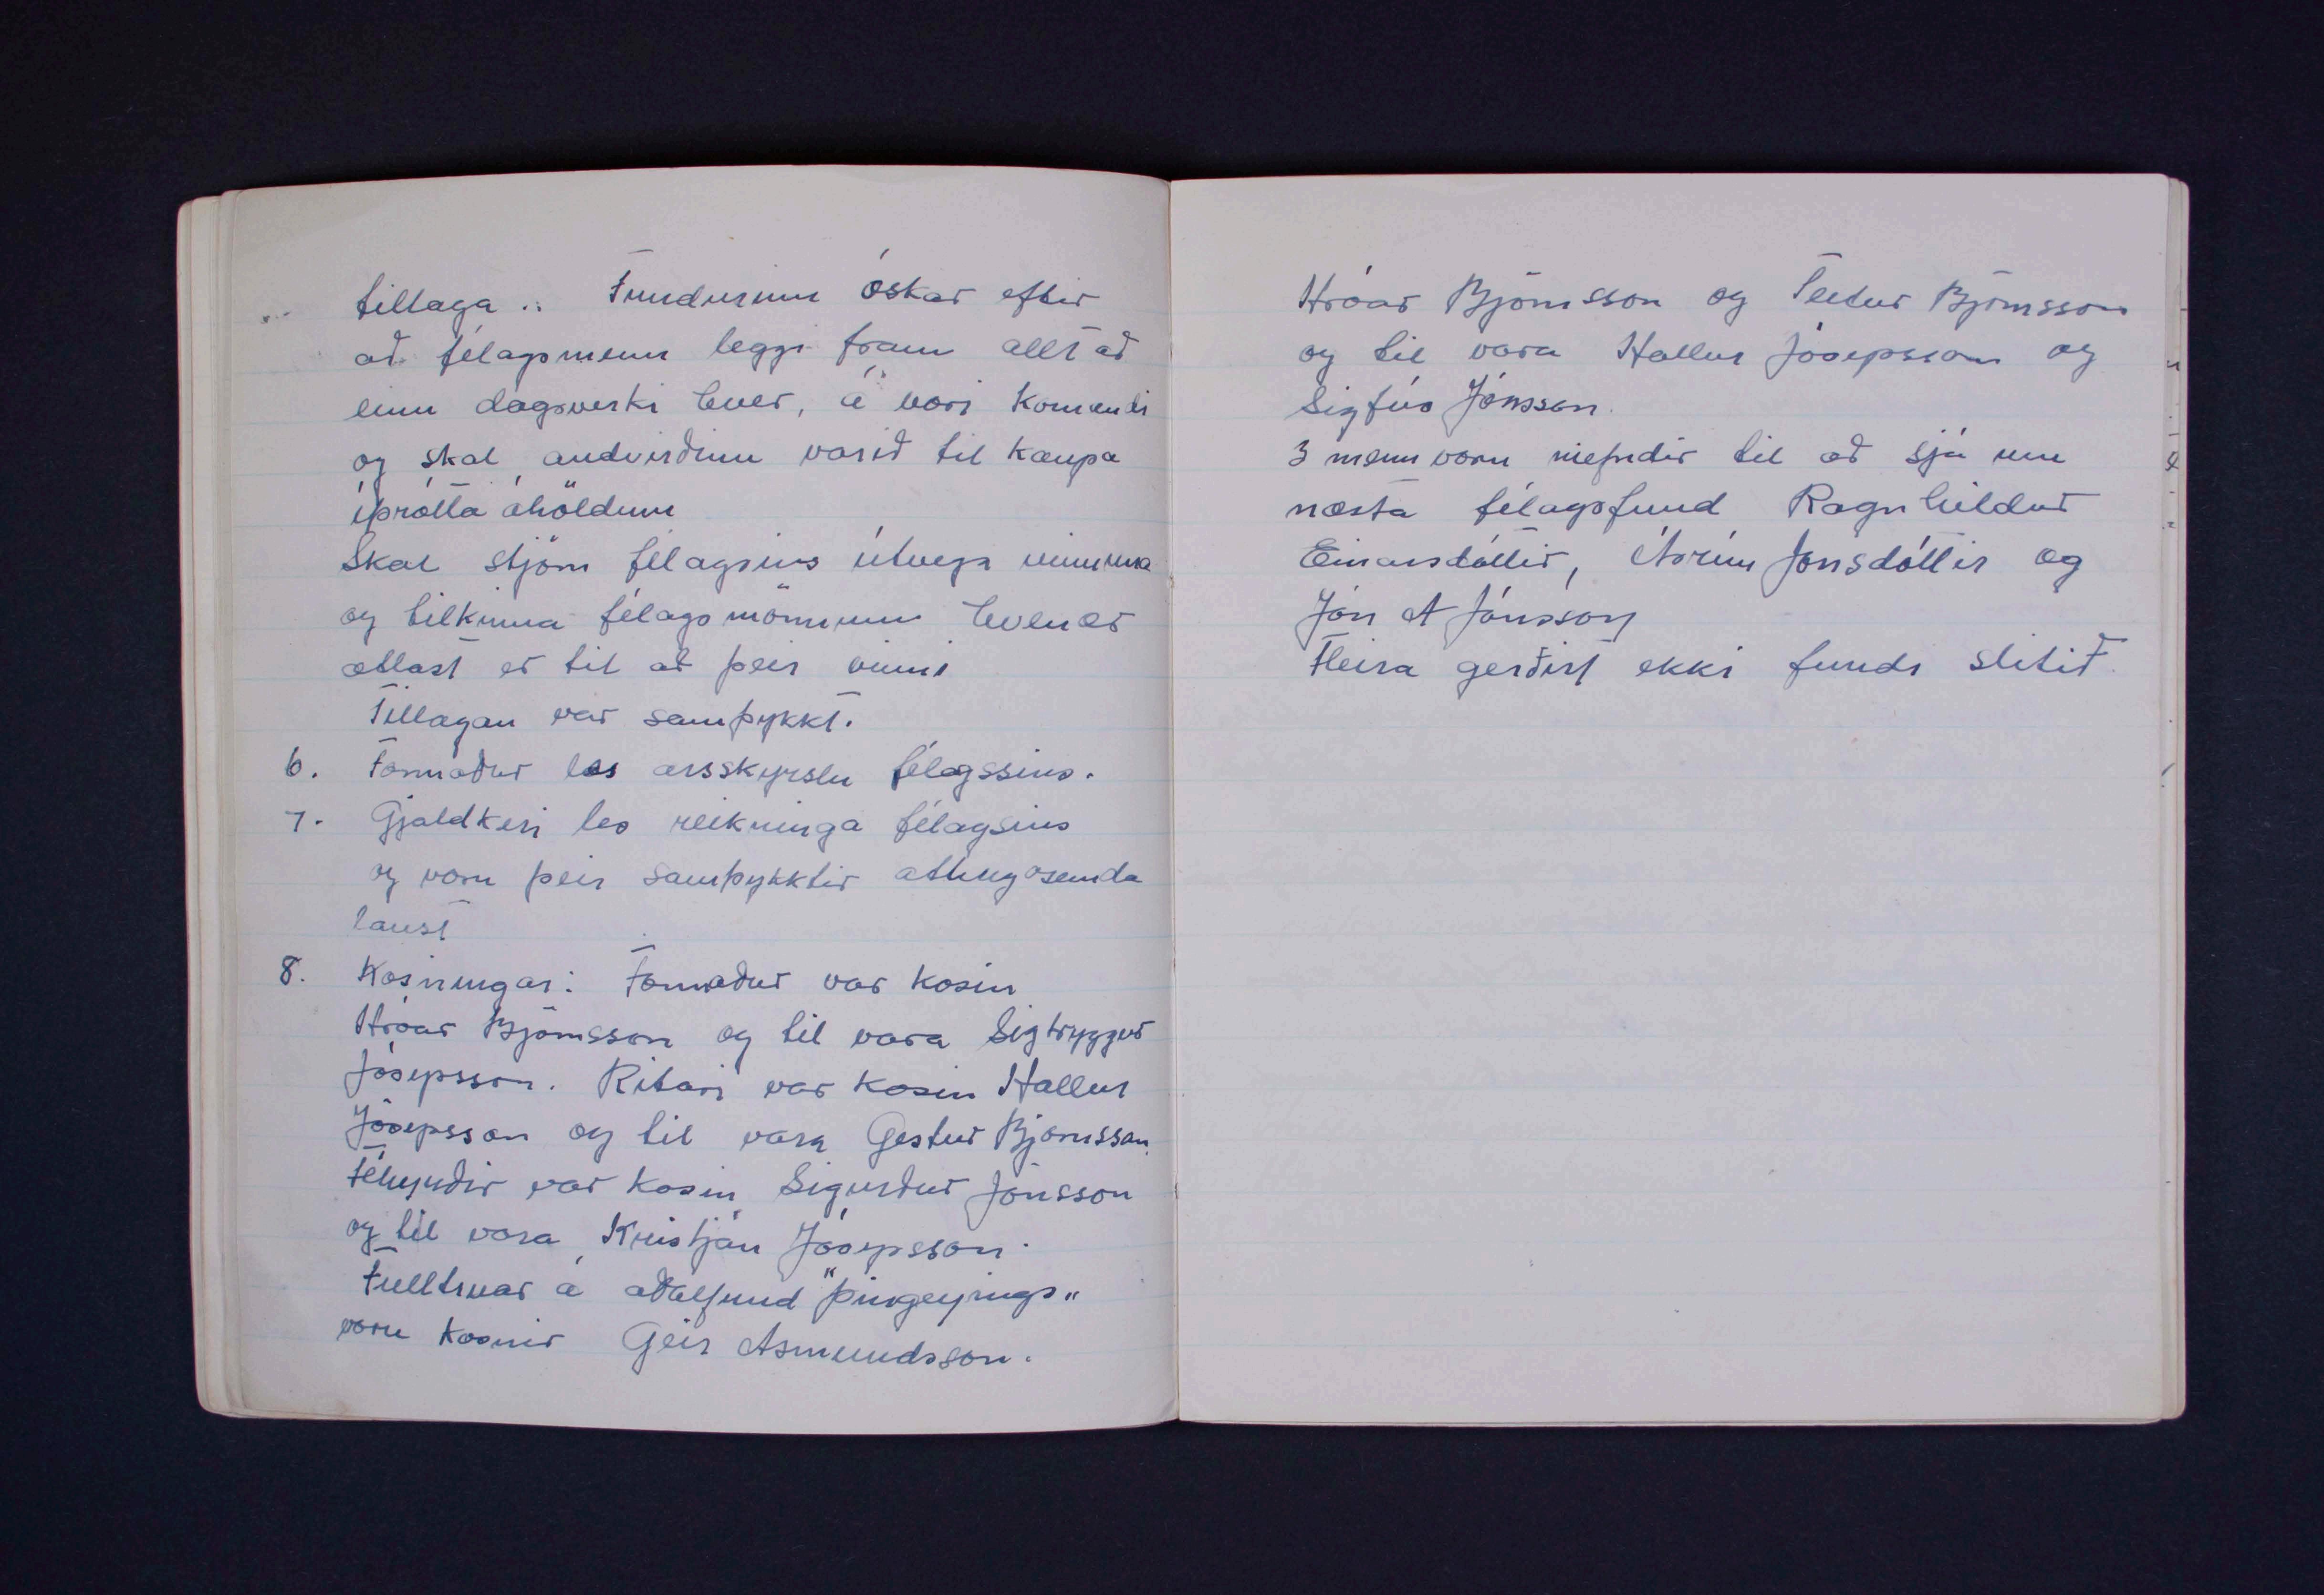 tillaga :. Fundurinn óskar eftir
að félagsmenn leggi fram allt að
einu dagsverki hver, á vori komandi
og skal andvirðinu varið til kaupa
íþrótta áhöldum
Skal stjórn félagsins útvega vinnuna
og tilkinna félagsmönnum hvenær
ætlast er til að þeir vinni
Tillagan var samþykkt.
6. Formaður las arsskyrslu félagssins.
7. Gjaldkeri las reikninga félagsins
og voru þeir samþykktir athugasemda
laust
8. Kosningar: Formaður var kosin
Hróar Björnsson og til vara Sigtryggur
Jósepsson. Ritari var kosin Hallur
Jósepsson og til vara Gestur Björnsson.
Féhyrðir var kosin Sigurður Jónsson
og til vara Kristján Jósepsson.
Fulltruar á aðalfund "Þingeyings"
voru kosnir Geir Asmundsson.
Hróar Björnsson og Teitur Björnsson
og til vara Hallur Jósepsson og
Sigfús Jónsson.
3 menn voru niefndir til að sjá um
næsta félagsfund Ragnhildur
Einarsdóttir, Ásrún Jónsdóttir og
Jón A Jónsson
Fleira gerðist ekki fundi slitið.